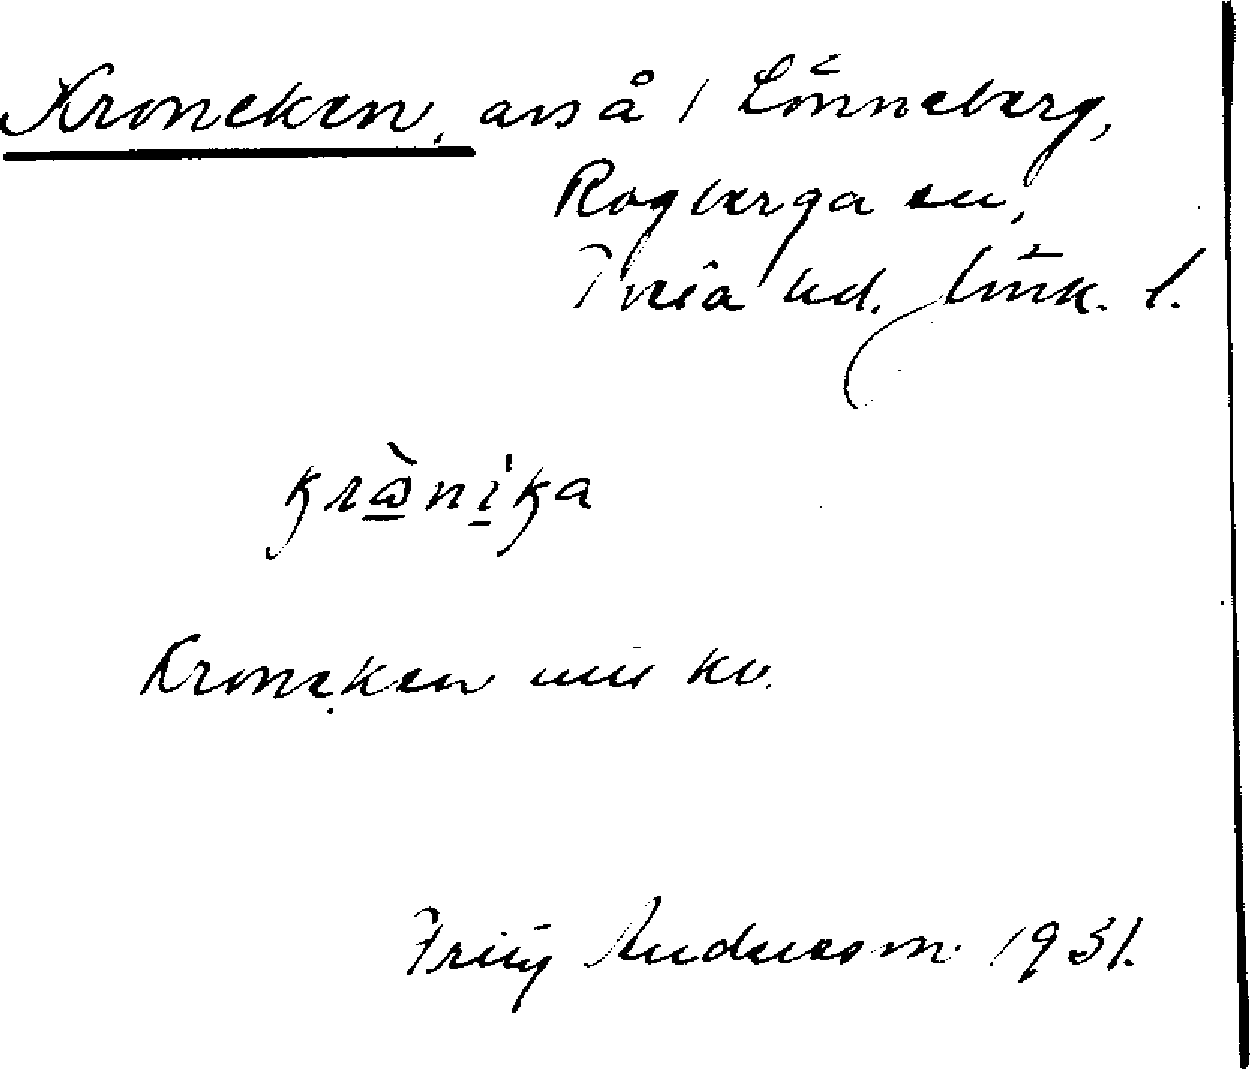 Kroneken, avs å / Lönneberg,
Rogberga sn,
Tveta hd. Jönk. l.
krònika
Kroneken
Fritz Andersson 1931.